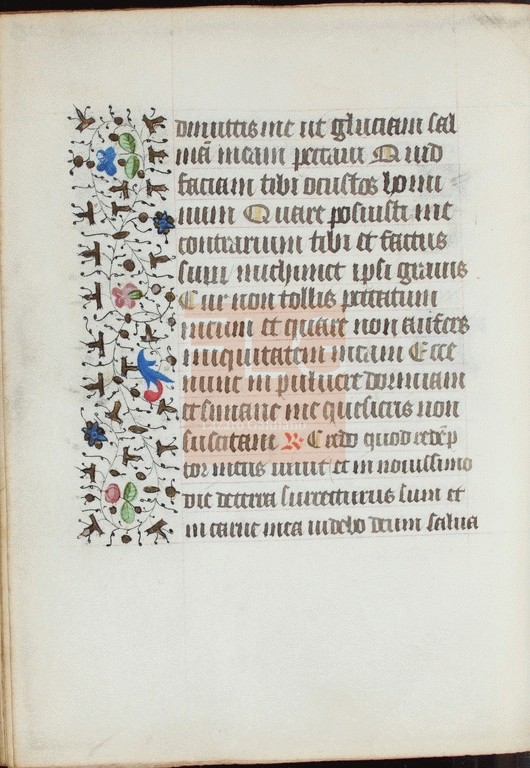 dimittis me ut gluciam sal
mã meam peccavi Quid
faciam tibi o custos homi
num Quare posuisti me
contrarium tibi et factus
sum michimet ipsi gravis
Cur non tollis peccatum
meum et quare non aufers
iniquitatem meam Ecce
nunc in pulvere dormiam
et si mane me quesieris non
subsistam R Credo quod redẽp
tor meus vivit et in novissimo
die de terra surrecturus sum et
in carne mea videbo deum salva
Lázaro Galdiano